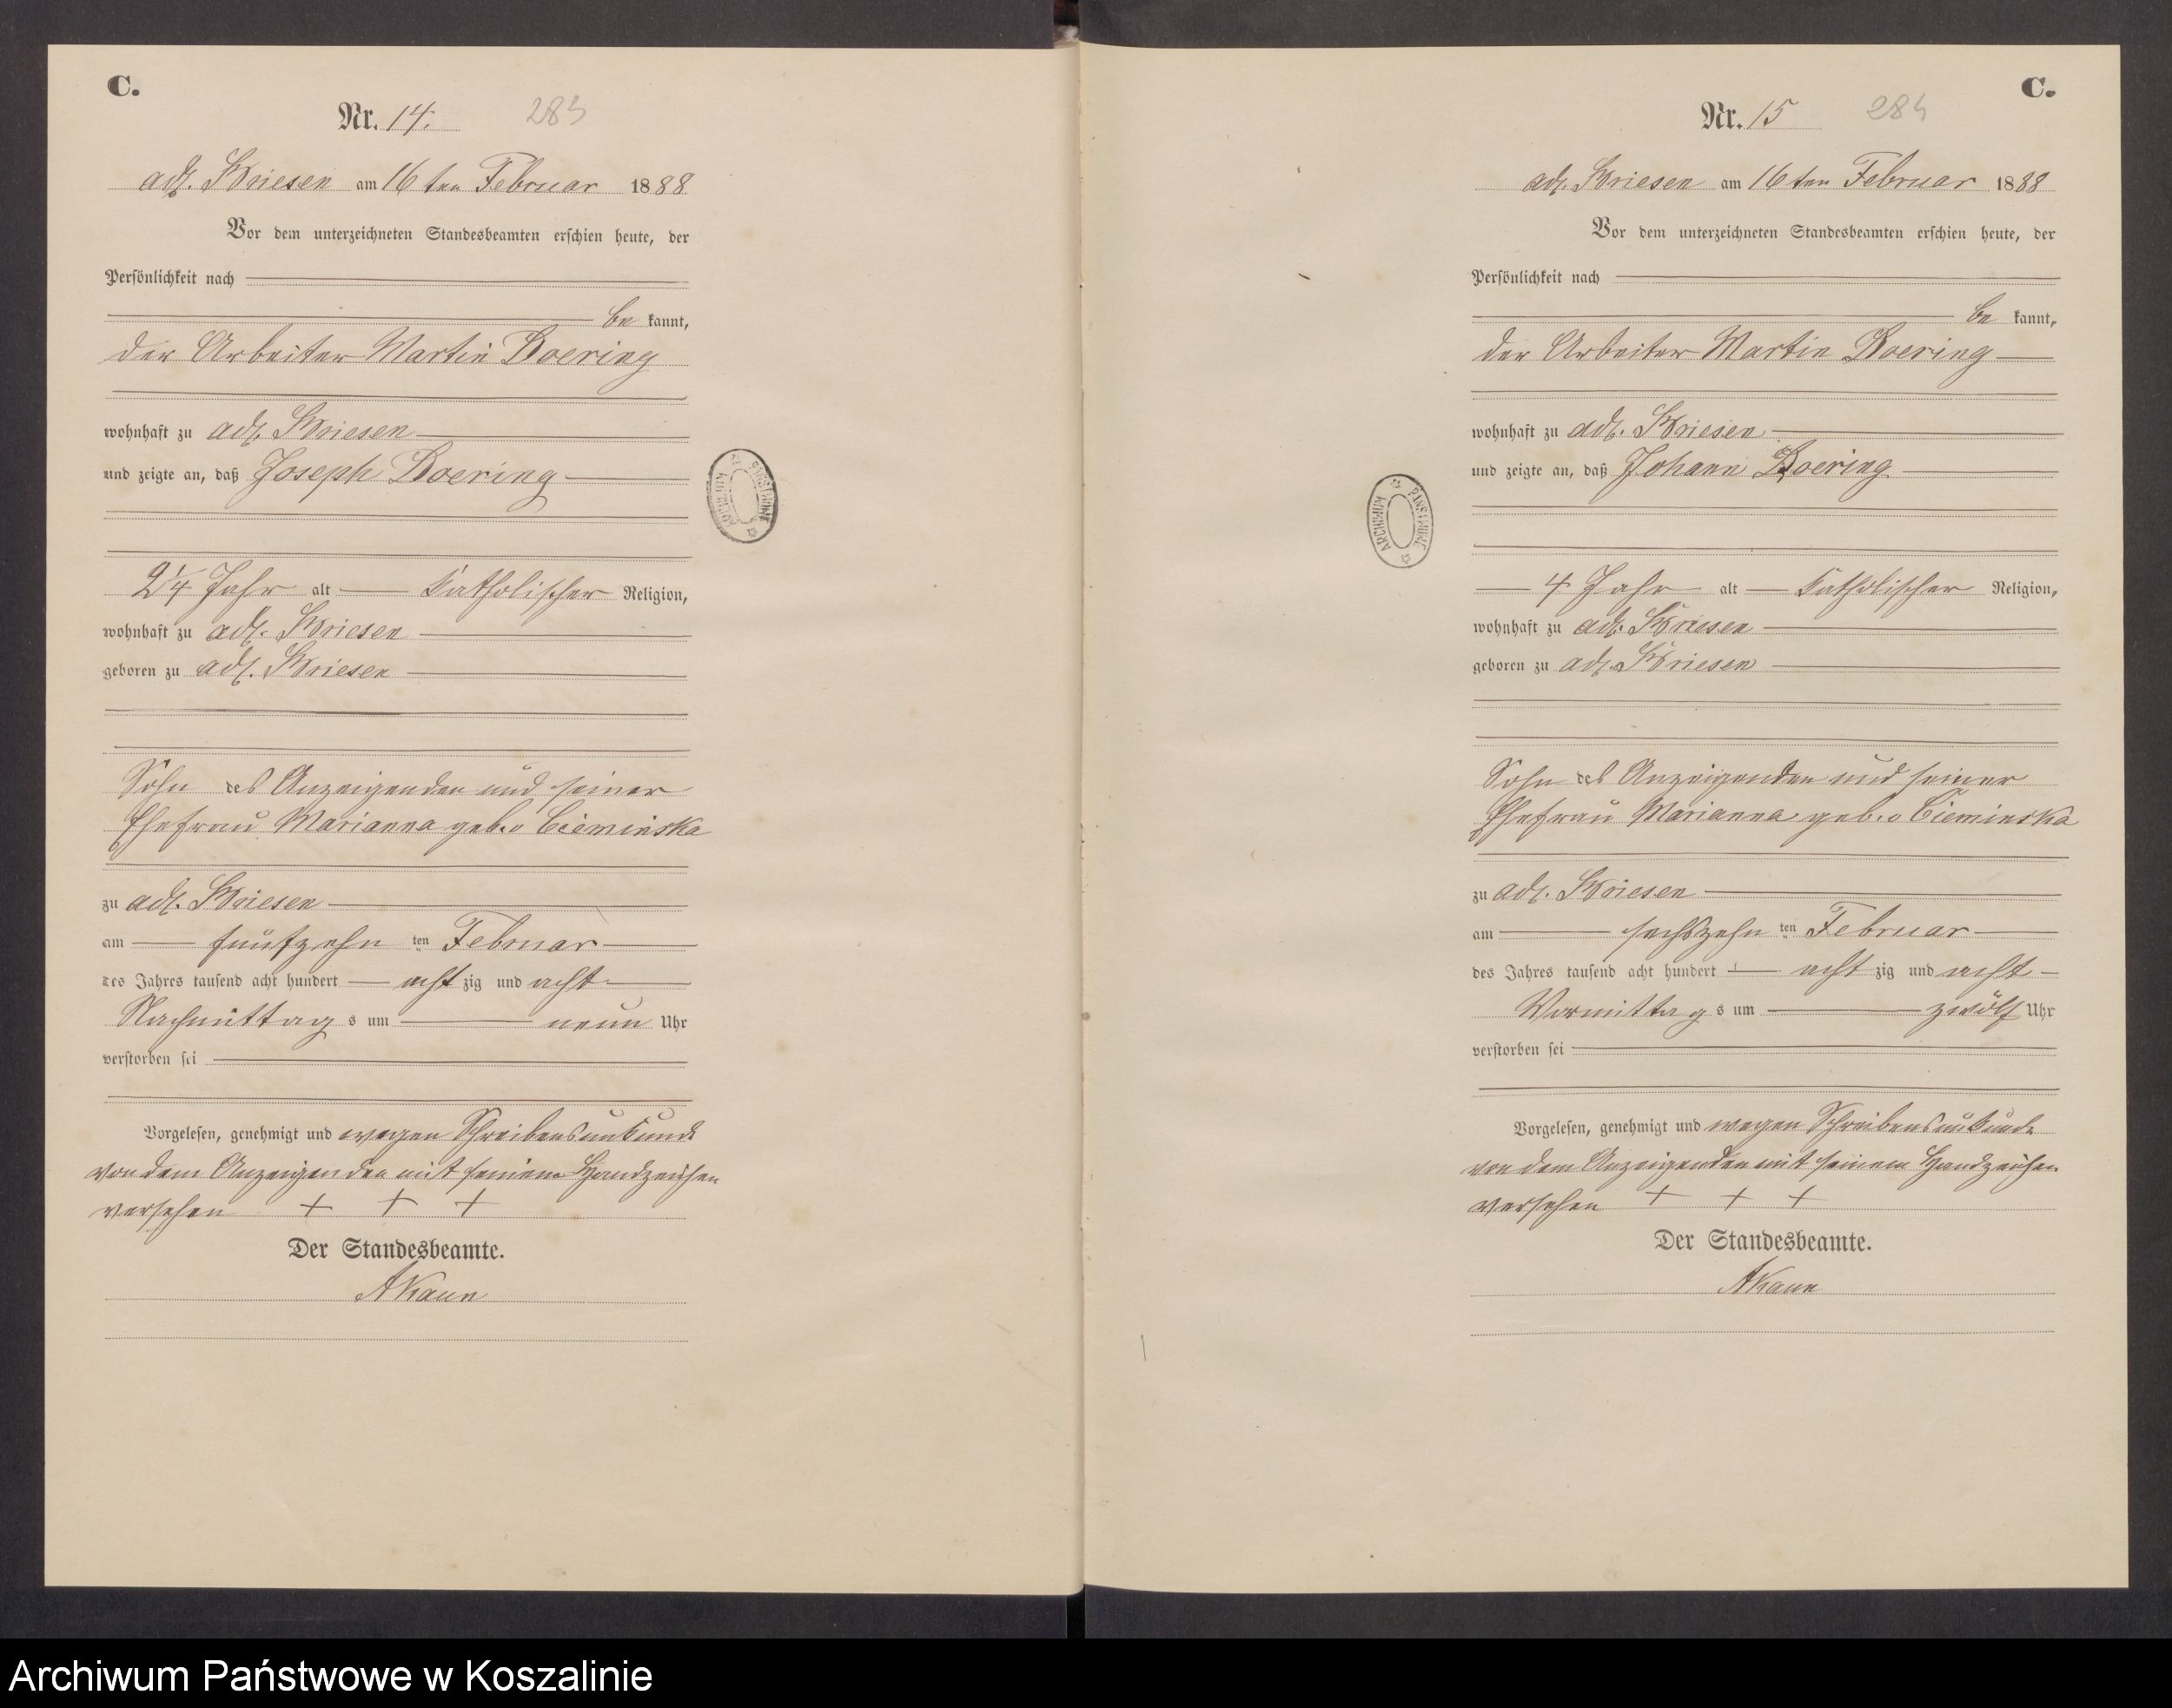 C.
Nr. 14. 283
adl. Briesen am 16ten Februar 1888
Vor dem unterzeichneten Standesbeamten erschien heute, der
Persönlichkeit nach
be kannt,
der Arbeiter Martin Doering
wohnhaft zu adl. Briesen
und zeigte an, daß Joseph Doering
2¼ Jahr alt katholischer Religion,
wohnhaft zu adl. Briesen
geboren zu adl. Briesen
Sohn des Anzeigenden und seiner
Ehefrau Marianna geb. v Cieminska
zu adl. Briesen
am fünfzehn ten Februar
des Jahres tausend acht hundert acht zig und acht
Nachmittag s um neun Uhr
verstorben sei
Vorgelesen, genehmigt und wegen Schreibensunkunde
von dem Anzeigenden mit seinem Handzeichen
versehen + + +
Der Standesbeamte.
AKaun
ARCHIWUM PAŃSTWOWE
C.
Nr. 15 284
adl. Briesen am 16ten Februar 1888
Vor dem unterzeichneten Standesbeamten erschien heute, der
Persönlichkeit nach
be kannt,
der Arbeiter Martin Doering
wohnhaft zu adl. Briesen
und zeigte an, daß Johann Doering
4 Jahr alt katholischer Religion,
wohnhaft zu adl. Briesen
geboren zu adl. Briesen
Sohn des Anzeigenden und seiner
Ehefrau Marianna geb. v Cieminska
zu adl. Briesen
am sechszehn ten Februar
des Jahres tausend acht hundert acht zig und acht
Vormittag s um zwölf Uhr
verstorben sei
Vorgelesen, genehmigt und wegen Schreibensunkunde
von dem Anzeigenden mit seinem Handzeichen
versehen + + +
Der Standesbeamte.
AKaun
ARCHIWUM PAŃSTWOWE
Archiwum Państwowe w Koszalinie